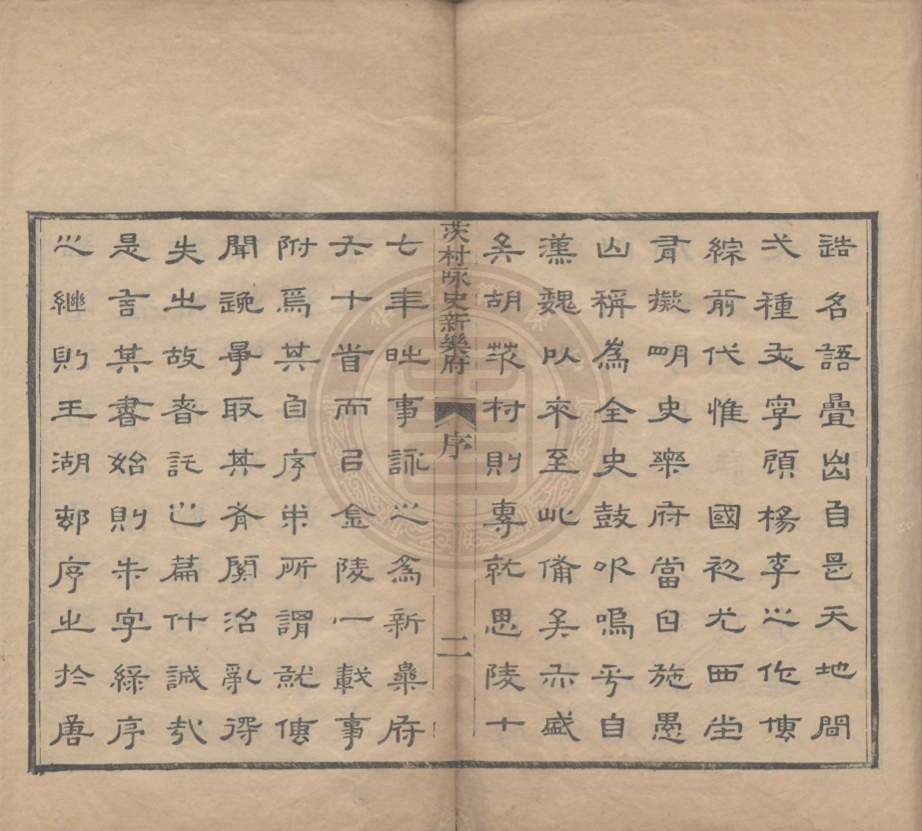 造名語疊出自是天地間
弌種文字顧楊李之作傳
綜前代惟國初尤西堂
肯擬明史樂府當日施愚
山稱為全史鼓吹嗚乎自
漢魏以來至此備矣亦盛
矣胡茨村則專就思陵十
茨村咏史新樂府 序 二
七年時事詠之為新樂府
六十首而以金陵一載事
附焉其自序中所謂就傳
聞疏畧取其有關治亂得
失之故者託之篇什誠哉
是言其書始則朱字綠序
之繼則王湖邨序之於唐